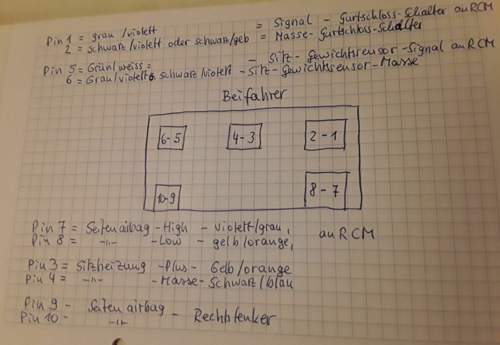 Pin 1 = grau/violett = Signal - Gurtschloss-Schalter an RCM
2 = schwarz/violett oder schwarz/gelb = Masse-Gurtschloss-Schalter
Pin 5 = Grün/weiss = - Sitz-Gewichtssensor-Signal an RCM
6 = Grau/violett schwarz/violett - Sitz-Gewichtssensor-Masse
Beifahrer
6-5 4-3 2-1
10-9 8-7
Pin 7 = Seitenairbag-High - violett/grau, an RCM
Pin 8 = -"- -Low - gelb/orange,
Pin 3 = Sitzheizung -Plus- Gelb/orange
Pin 4 = -"- -Masse-Schwarz/blau
Pin 9 - Seitenairbag - Rechtslenker
Pin 10 - -"-